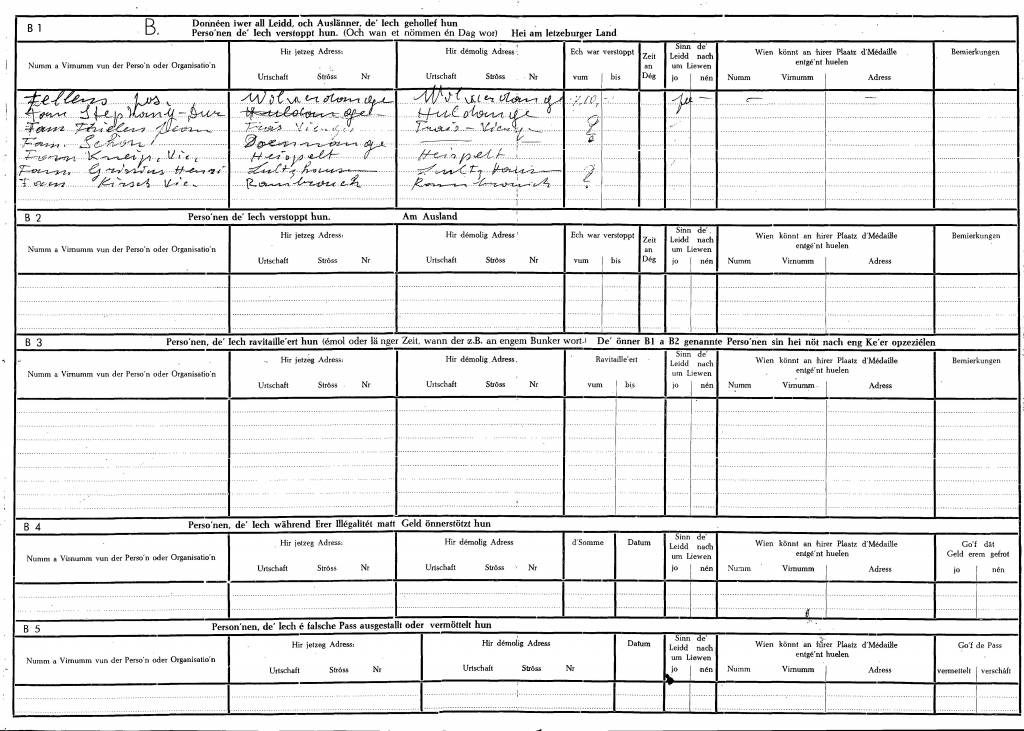 B 1 B. Donnéen iwer all Leidd, och Auslänner, de' Iech gehollef hun
Perso'nen de' Iech verstoppt hun. (Och wan et nömmen én Dag wor) Hei am letzeburger Land
Numm a Virnumm vun der Perso'n oder Organisatio'n
Hir jetzeg Adress:
Urtschaft Ströss Nr
Hir démolig Adress:
Urtschaft Ströss Nr
Ech war verstoppt
vum bis
Zeit
an
Dég
Sinn de'
Leidd nach
um Liewen
jo nén
Wien könnt an hirer Plaatz d'Médaille
entgé'nt huelen
Numm Virnumm Adress
Bemierkungen
Jos. Wolwerdange Wolwerdange
Fam Huldange Huldange
Fam ?
Fam. Schon Doennange —
Fam Kneip, Vic. Heispelt Heispelt
Fam. Henri ?
Fam Kirsch Vic. Rambrouch Rambrouch
B 2 Perso'nen de' Iech verstoppt hun. Am Ausland
Numm a Virnumm vun der Perso'n oder Organisatio'n
Hir jetzeg Adress:
Urtschaft Ströss Nr
Hir démolig Adress
Urtschaft Ströss Nr
Ech war verstoppt
vum bis
Zeit
an
Dég
Sinn de'
Leidd nach
um Liewen
jo nén
Wien könnt an hirer Plaatz d'Médaille
entgé'nt huelen
Numm Virnumm Adress
Bemierkungen
B 3 Perso'nen, de' Iech ravitaille'ert hun (émol oder länger Zeit, wann der z.B. an engem Bunker wort.) De' önner B1 a B2 genannte Perso'nen sin hei nöt nach eng Ke'er opzeziélen
Numm a Virnumm vun der Perso'n oder Organisatio'n
Hir jetzeg Adress:
Urtschaft Ströss Nr
Hir démolig Adress
Urtschaft Ströss Nr
Ravitaille'ert
vum bis
Sinn de'
Leidd nach
um Liewen
jo nén
Wien könnt an hirer Plaatz d'Médaille
entgé'nt huelen
Numm Virnumm Adress
Bemierkungen
B 4 Perso'nen, de' Iech während Erer Illégalitét matt Geld önnerstötzt hun
Numm a Virnumm vun der Perso'n oder Organisatio'n
Hir jetzeg Adress:
Urtschaft Ströss Nr
Hir démolig Adress
Urtschaft Ströss Nr
d'Somme
Datum
Sinn de'
Leidd nach
um Liewen
jo nén
Wien könnt an hirer Plaatz d'Médaille
entgé'nt huelen
Numm Virnumm Adress
Go'f dât
Geld erem gefrot
jo nén
B 5 Person'nen, de' Iech é falsche Pass ausgestallt oder vermöttelt hun
Numm a Virnumm vun der Perso'n oder Organisatio'n
Hir jezieg Adress:
Urtschaft Ströss Nr
Hir démolig Adress
Urtschaft Ströss Nr
Datum
Sinn de'
Leidd nach
um Liewen
jo nén
Wien könnt an hirer Plaatz d'Médaille
entgé'nt huelen
Numm Virnumm Adress
Go'f de Pass
vermettelt verschâft